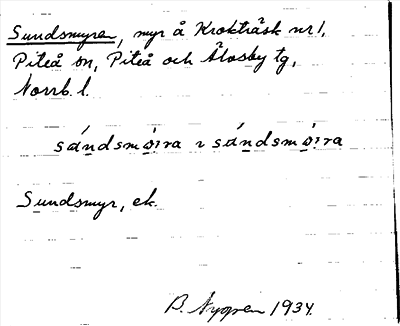 Sundsmyran, myr å Kroktråsk nr 1,
Piteå sn, Piteå och Älvsby tg,
Norrb. l.
sándsmó̱i̯ra ı sándsmó̱i̯ra
Sundsmyr, ek.
B. Nygren 1934.